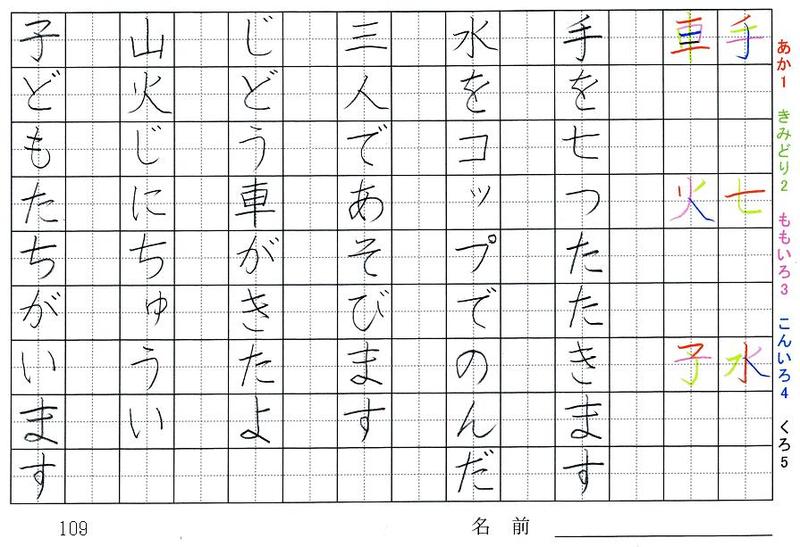 あか1 きみどり2 ももいろ3 こんいろ4 くろ5
手 七 水
車 火 子
手を七つたたきます
水をコップでのんだ
三人であそびます
じどう車がきたよ
山火じにちゅうい
子どもたちがいます
109 名前